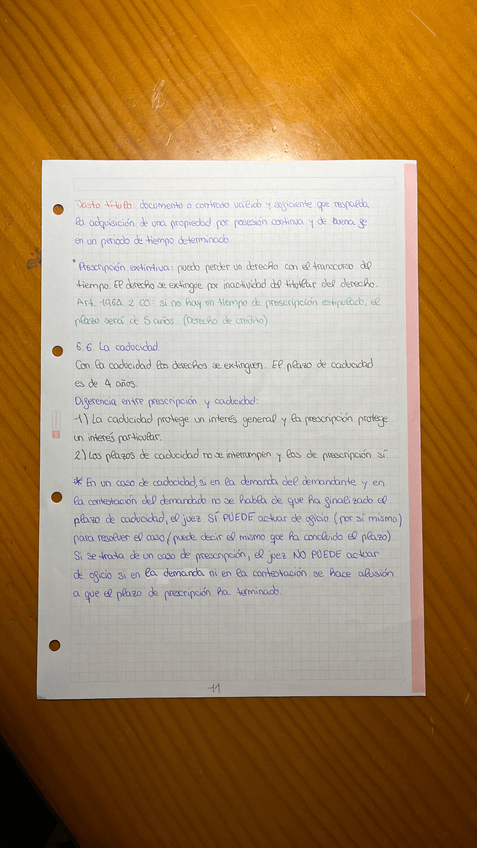 Justo título: documento o contrato válido y suficiente que respalda
la adquisición de una propiedad por posesión continua y de buena fe
en un periodo de tiempo determinado.
* Prescripción extintiva: puedo perder un derecho con el transcurso del
tiempo. El derecho se extingue por inactividad del titular del derecho.
Art. 1964. 2 CC: si no hay un tiempo de prescripción estipulado, el
plazo será de 5 años. (Derecho de crédito)
6.6. La caducidad.
Con la caducidad los derechos se extinguen. El plazo de caducidad
es de 4 años.
Diferencia entre prescripción y caducidad:
1) La caducidad protege un interés general y la prescripción protege
un interés particular.
2) Los plazos de caducidad no se interrumpen y los de prescripción sí.
* En un caso de caducidad, si en la demanda del demandante y en
la contestación del demandado no se habla de que ha finalizado el
plazo de caducidad, el juez SÍ PUEDE actuar de oficio (por sí mismo)
para resolver el caso / puede decir el mismo que ha concluido el plazo).
Si se trata de un caso de prescripción, el juez NO PUEDE actuar
de oficio si en la demanda ni en la contestación se hace alusión
a que el plazo de prescripción ha terminado.
11